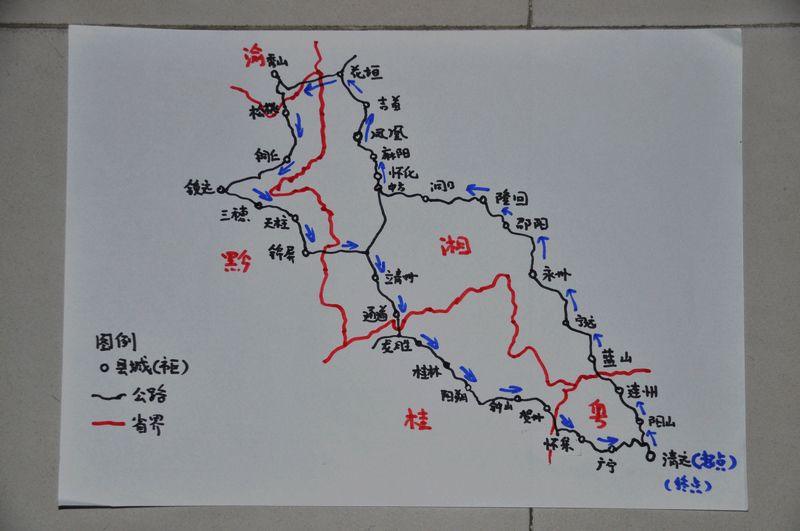 渝
秀山
花垣
松桃
吉首
凤凰
铜仁
麻阳
怀化
中方
镇远
洞口
隆回
三穗
天柱
邵阳
黔
锦屏
湘
靖州
永州
通道
宁远
龙胜
蓝山
图例
县城(市区)
公路
省界
桂林
阳朔
连州
钟山
贺州
粤
桂
阳山
怀集
广宁
清远(起点)
(终点)